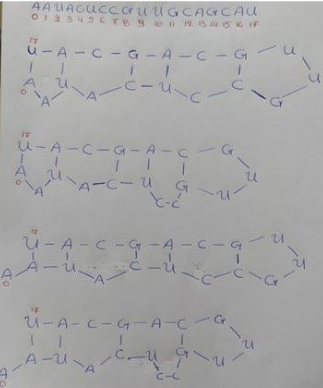 AAUACUCCGUUGCAGCAU
0 1 2 3 4 5 6 7 8 9 10 11 12 13 14 15 16 17
17
U - A - C - G - A - C - G - U
A U A C - U C C G U
0 A
17
U - A - C - G - A - C - G
A U U
0 A A - C U G U
C-C
17
U - A - C - G - A - C - G - U
A - A - U A C U C C G U
0
17
U - A - C - G - A - C - G
A - A - U A C U G U U
0 C-C